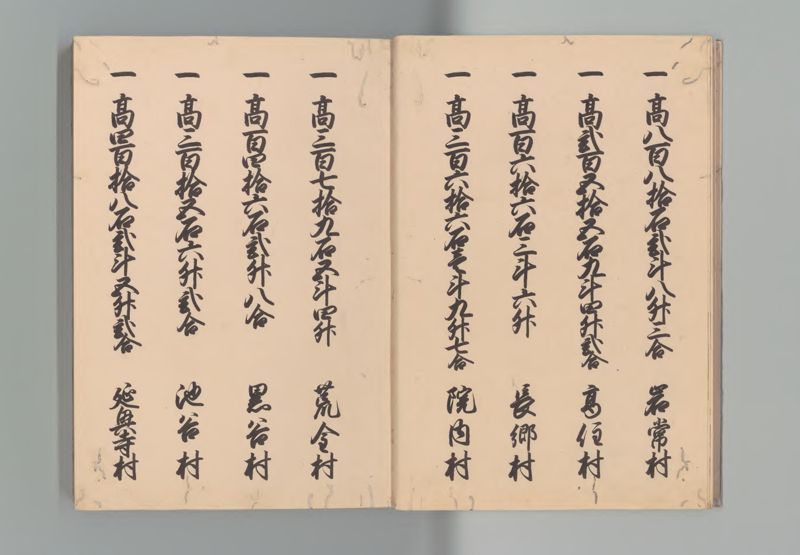 一 高八百八拾石弐斗八升三合 岩常村
一 高弐百五拾五石九斗四升弐合 高住村
一 高百六拾六石三斗六升 長郷村
一 高三百六拾六石壱斗九升七合 院内村
一 高三百七拾九石五斗四升 荒金村
一 高百四拾六石弐升八合 黒谷村
一 高三百拾五石六升弐合 池谷村
一 高四百拾八石弐斗五升弐合 延興寺村